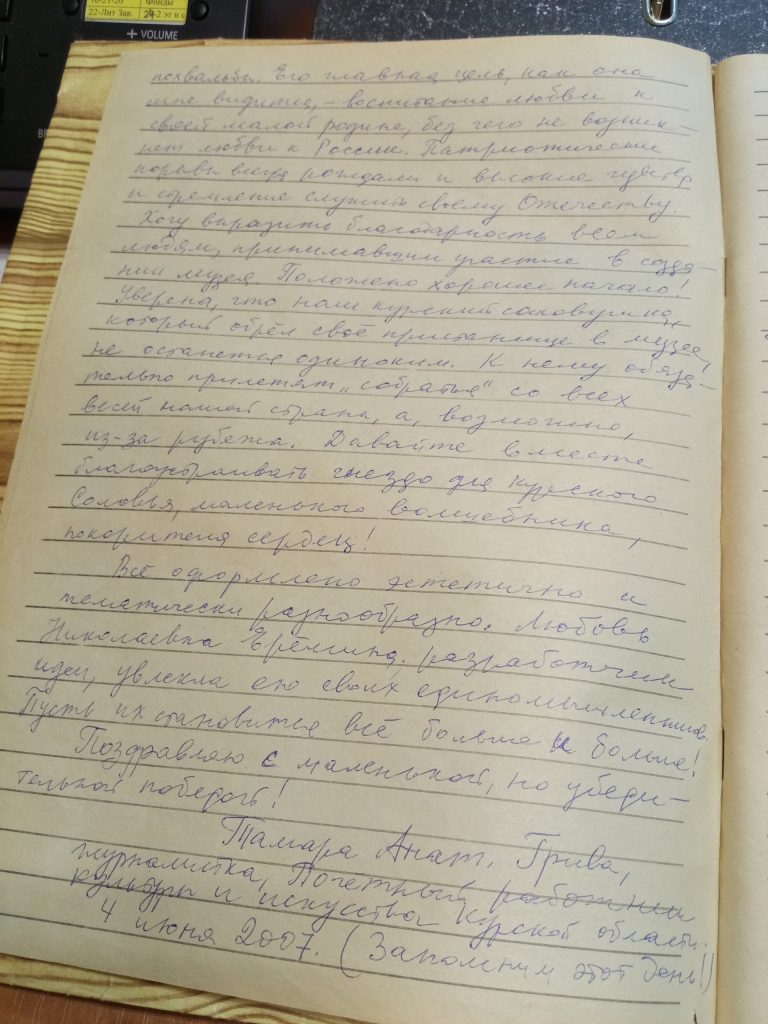 22-Лит Зав. 2 эт
Фонды
+ VOLUME
похвальбы. Его главная цель, как она
мне видится, – воспитание любви к
своей малой родине, без чего не возник-
нет любви к России. Патриотические
порывы рождали и высокие чувства
и стремление служить своему Отечеству.
Хочу выразить благодарность всем
людям, принимавшим участие в созда-
нии музея. Положено хорошее начало!
Уверена, что наш курский соловушка,
который обрёл своё пристанище в музее,
не останется одиноким. К нему обяза-
тельно прилетят „собратья“ со всех
весей нашей страны, а, возможно,
из-за рубежа. Давайте вместе
благоустраивать гнездо для курского
Соловья, маленького волшебника,
покорителя сердец!
Всё оформлено эстетично и
тематически разнообразно. Любовь
Николаевна разработчик
идеи, увлекла ею своих единомышленников.
Пусть их становится всё больше и больше!
Поздравляю с маленькой, но убеди-
тельной победой!
Тамара Анат. Грива,
журналистка, Почетный работник
культуры и искусства Курской области.
4 июня 2007. (Запомним этот день!)